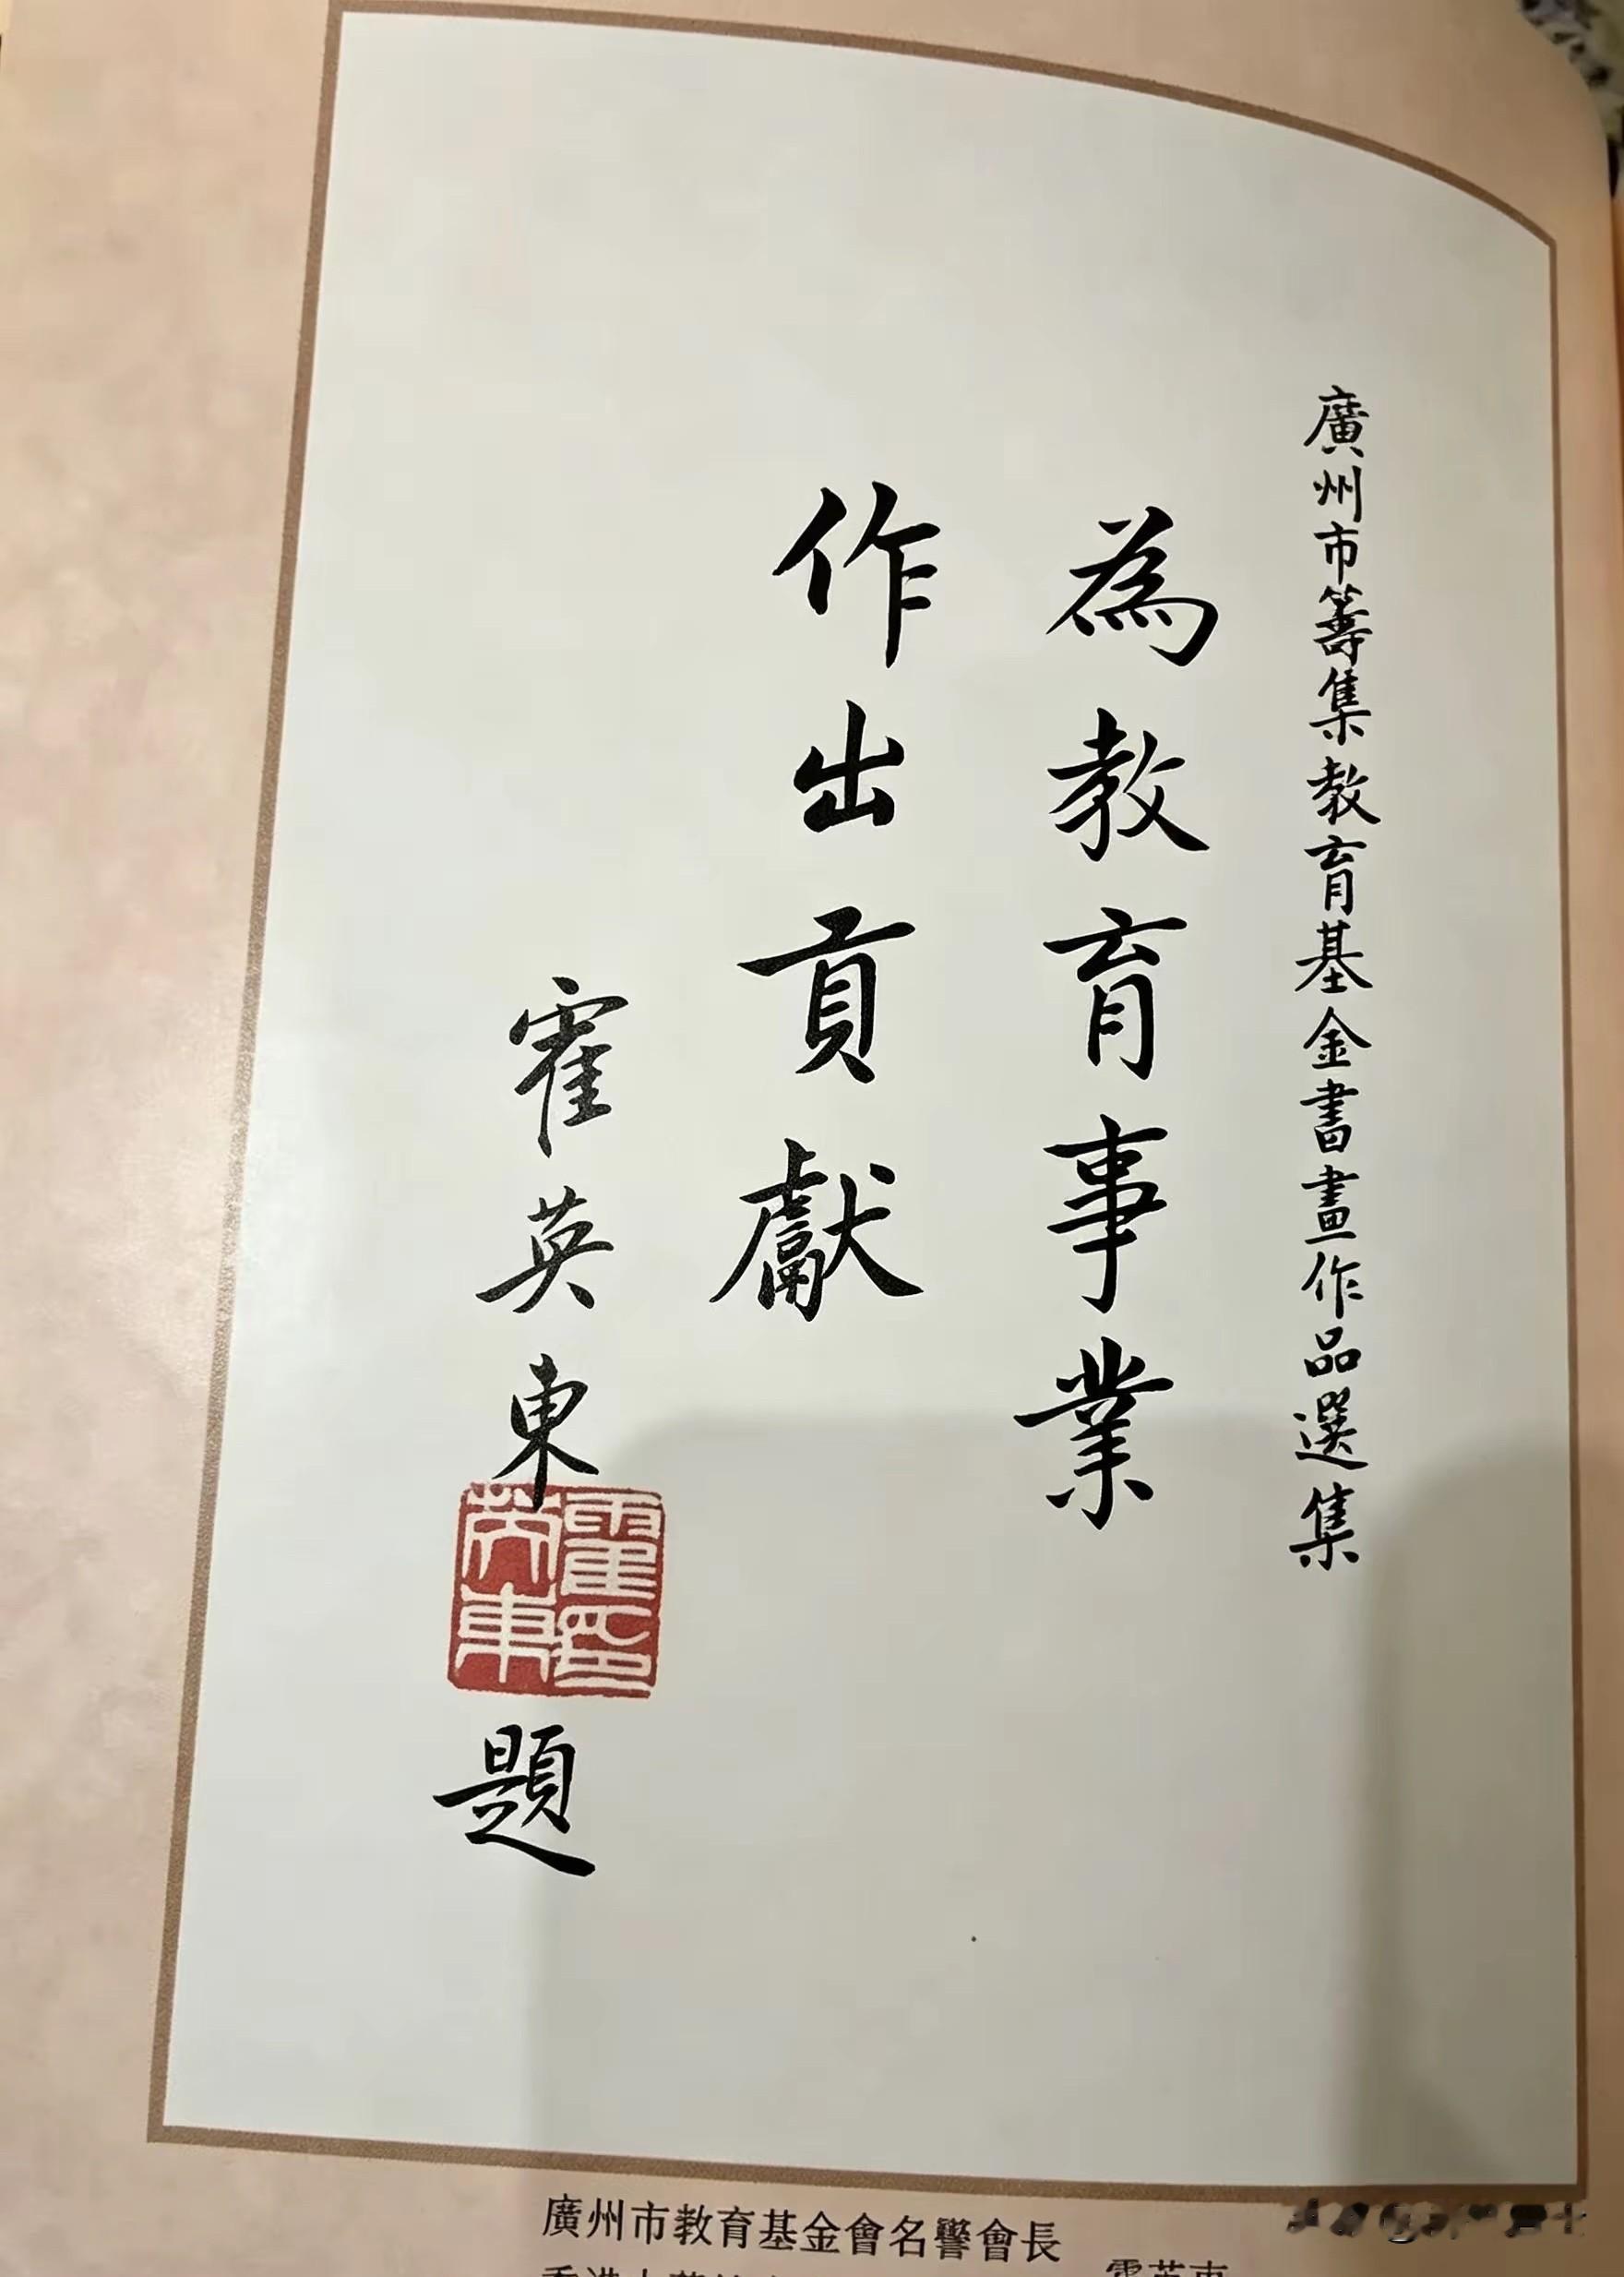 廣州市籌集教育基金書畫作品選集
為教育事業
作出貢獻
霍英東
霍英東印
題
廣州市教育基金會名譽會長
霍英東